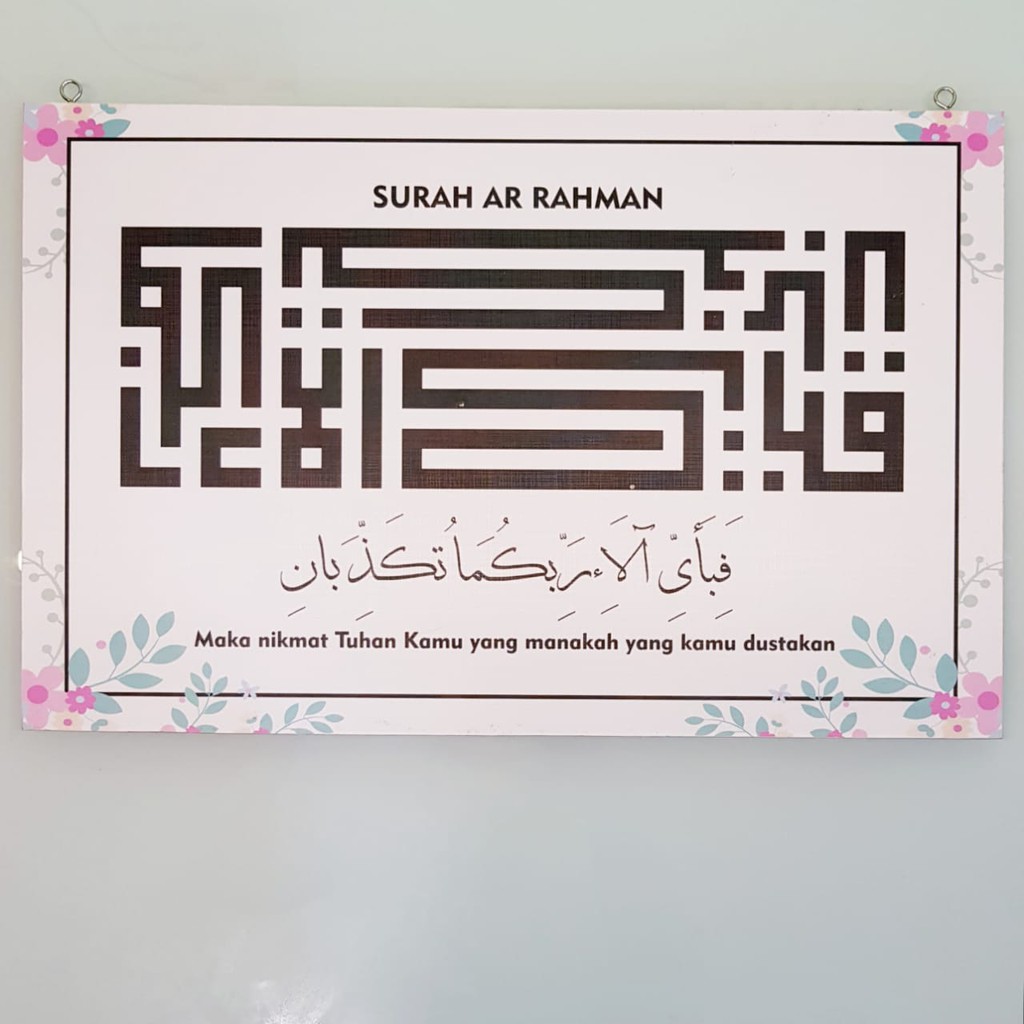 SURAH AR RAHMAN
فبأي آلاء ربكما تكذبان
فَبِأَيِّ آلَاءِ رَبِّكُمَا تُكَذِّبَانِ
Maka nikmat Tuhan Kamu yang manakah yang kamu dustakan